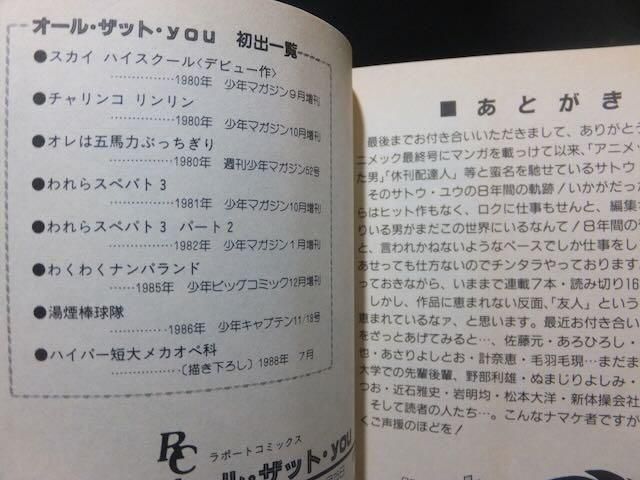 オール・ザット・you 初出一覧
●スカイ ハイスクール〈デビュー作〉
…………1980年 少年マガジン9月増刊
●チャリンコ リンリン
…………1980年 少年マガジン10月増刊
●オレは五馬力ぶっちぎり
…………1980年 週刊少年マガジン52号
●われらスペパト3
…………1981年 少年マガジン10月増刊
●われらスペパト3 パート2
…………1982年 少年マガジン1月増刊
●わくわくナンパランド
……1985年 少年ビッグコミック12月増刊
●湯煙棒球隊
…………1986年 少年キャプテン11/18号
●ハイパー短大メカオペ科
…………〔描き下ろし〕1988年 7月
RC
ラポートコミックス
オール・ザット・you
■あとがき
最後までお付き合いいただきまして、ありがとう
ニメック最終号にマンガを載っけて以来、「アニメ・
た男」「休刊配達人」等と蛮名を馳せているサトウ・
そのサトウ・ユウの8年間の軌跡!いかがだっ
らはヒット作もなく、ロクに仕事もせんと、編集
りいる男がまだこの世界にいるなんて!8年間の
と、言われかねないようなペースでしか仕事をし
あせっても仕方ないのでチンタラやっております
っておきながら、いままで連載7本・読み切り16
しかし、作品に恵まれない反面、「友人」という
恵まれているなァ、と思います。最近お付き合い
をざっとあげてみると…、佐藤元・あろひろし・
也・あさりよしとお・計奈恵・毛羽毛現…まだま
大学での先輩後輩、野部利雄・ぬまじりよしみ・
つお・近石雅史・岩明均・松本大洋・新体操会社
そして読者の人たち…。こんなナマケ者ですか
くご声援のほどを!